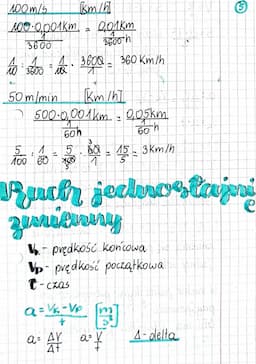 100m/s [km/h]
③
100·0,001km = 0,01km
1/3600 1/3600 h
1/10 : 1/3600 = 1/10 · 3600/1 = 360 km/h
50m/min [km/h]
500·0,001km = 0,05km
1/60h 1/60 h
5/100 : 1/60 = 5/100 · 60/1 = 15/5 = 3km/h
Ruch jednostajnie
zmienny
Vk - prędkość końcowa
Vp - prędkość początkowa
t - czas
a = Vk-Vp/t [m/s²]
a = ΔV/Δt a = V/t Δ - delta